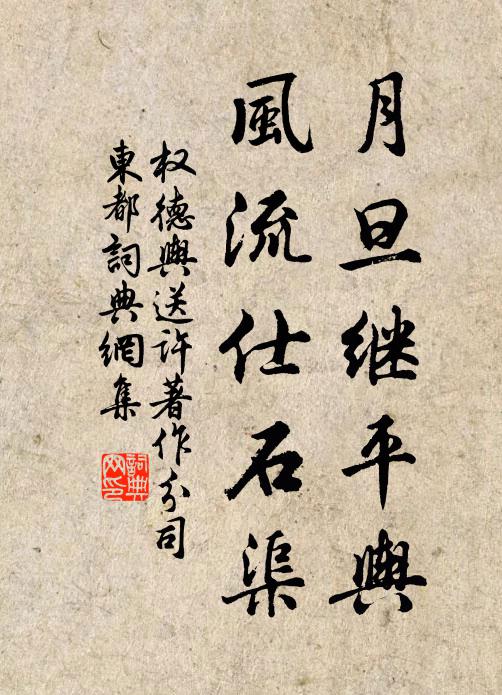 月旦继平輿
風流仕石渠
权德輿送许著作分司
東都詞典網集
詞典
网印